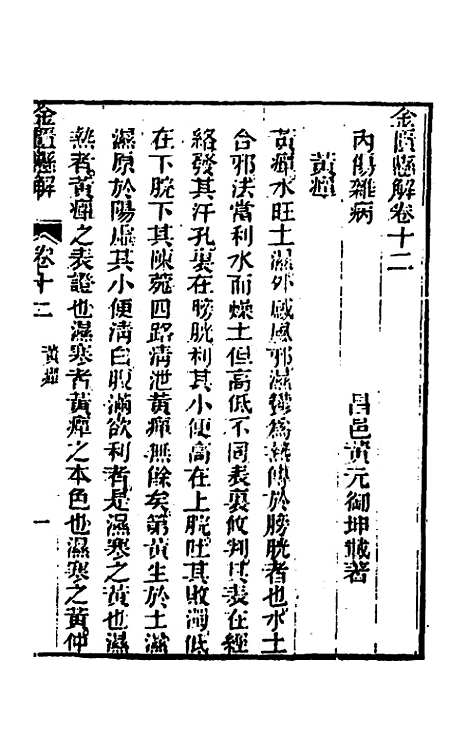 金匱懸解卷十二
昌邑黃元御坤載著
內傷雜病
黃癉
黃癉水旺土濕外感風邪濕鬱為熱傳於膀胱者也水土
合邪法當利水而燥土但高低不同表裏攸判其表在經
絡發其汗孔裏在膀胱利其小便高在上脘吐其敗濁低
在下脘下其陳菀四路清泄黃癉無餘矣第黃生於土濕
濕原於陽虛其小便清白腹滿欲利者是濕寒之黃也濕
熱者黃癉之表證也濕寒者黃癉之本色也濕寒之黃仲
金匱懸解 卷十二 黃癉 一